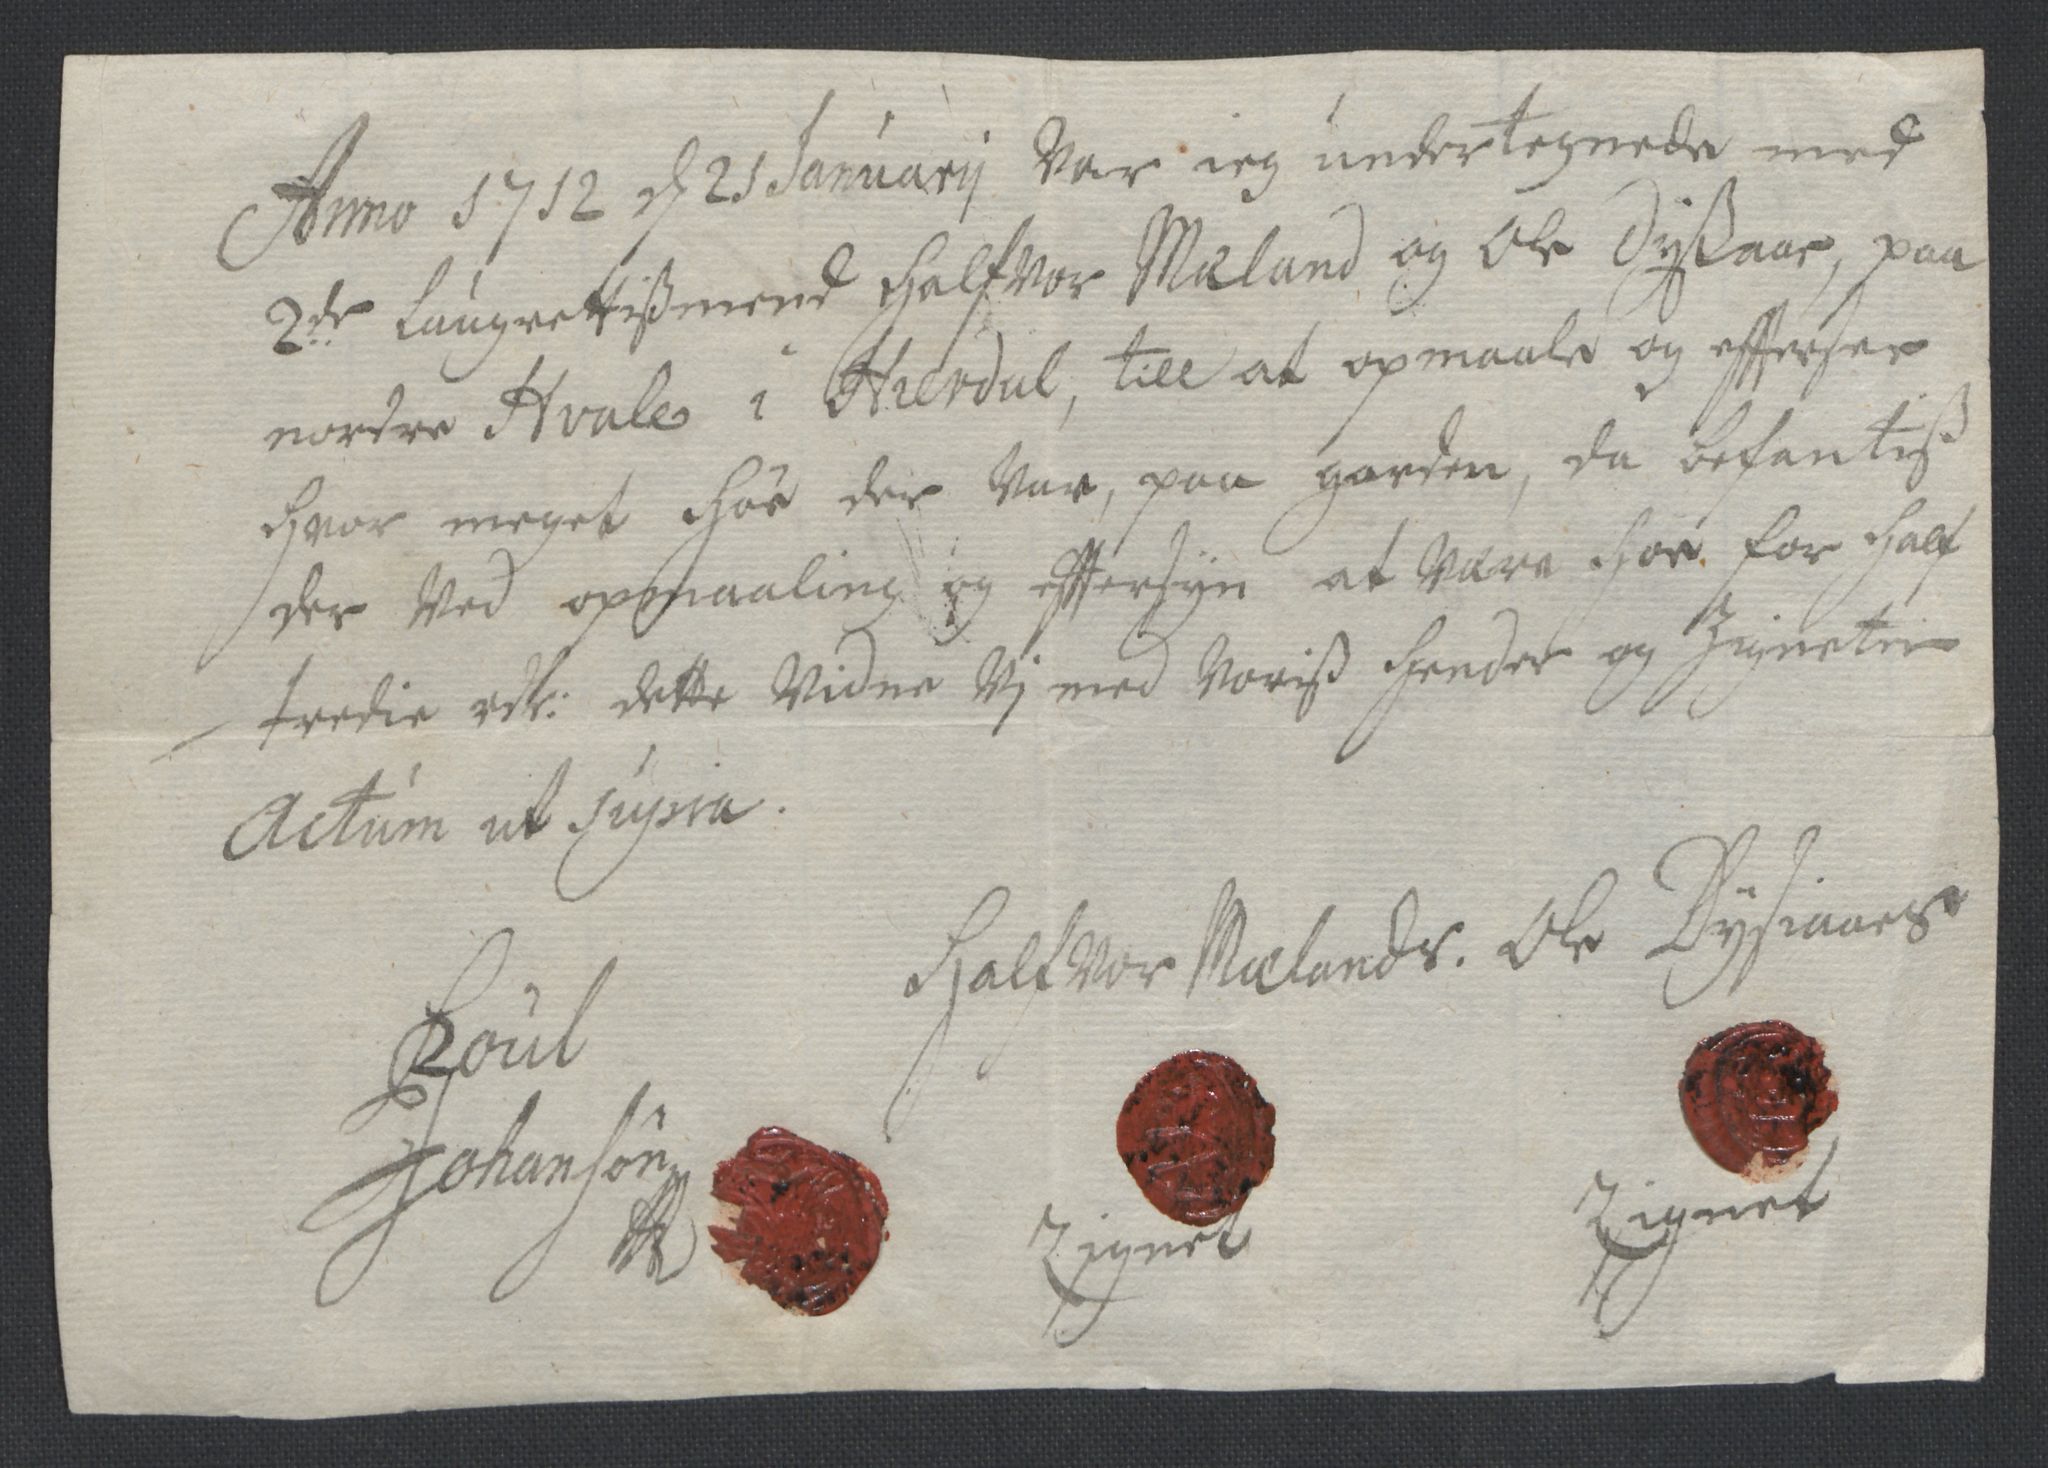 Anno 1712 d 21 Januarij Var ieg undertegnede med
2de Laugrettißmend Halfvor Mæland og Ole Dyßaar, paa
nordre Hvale i Hierdal, till at opmaale og effterse
Hvor meget Höe der Var, paa garden, da befantiß
der Ved opmaaling og efftersyn at Være Höe for Half
tredie rdr: dette Vidne Vj med Voriß Hender og Zigneter
Actum ut supra.
Halfvor Mælands. Ole Dysiaaes
Poul
Johansön
Zignet
Zignet